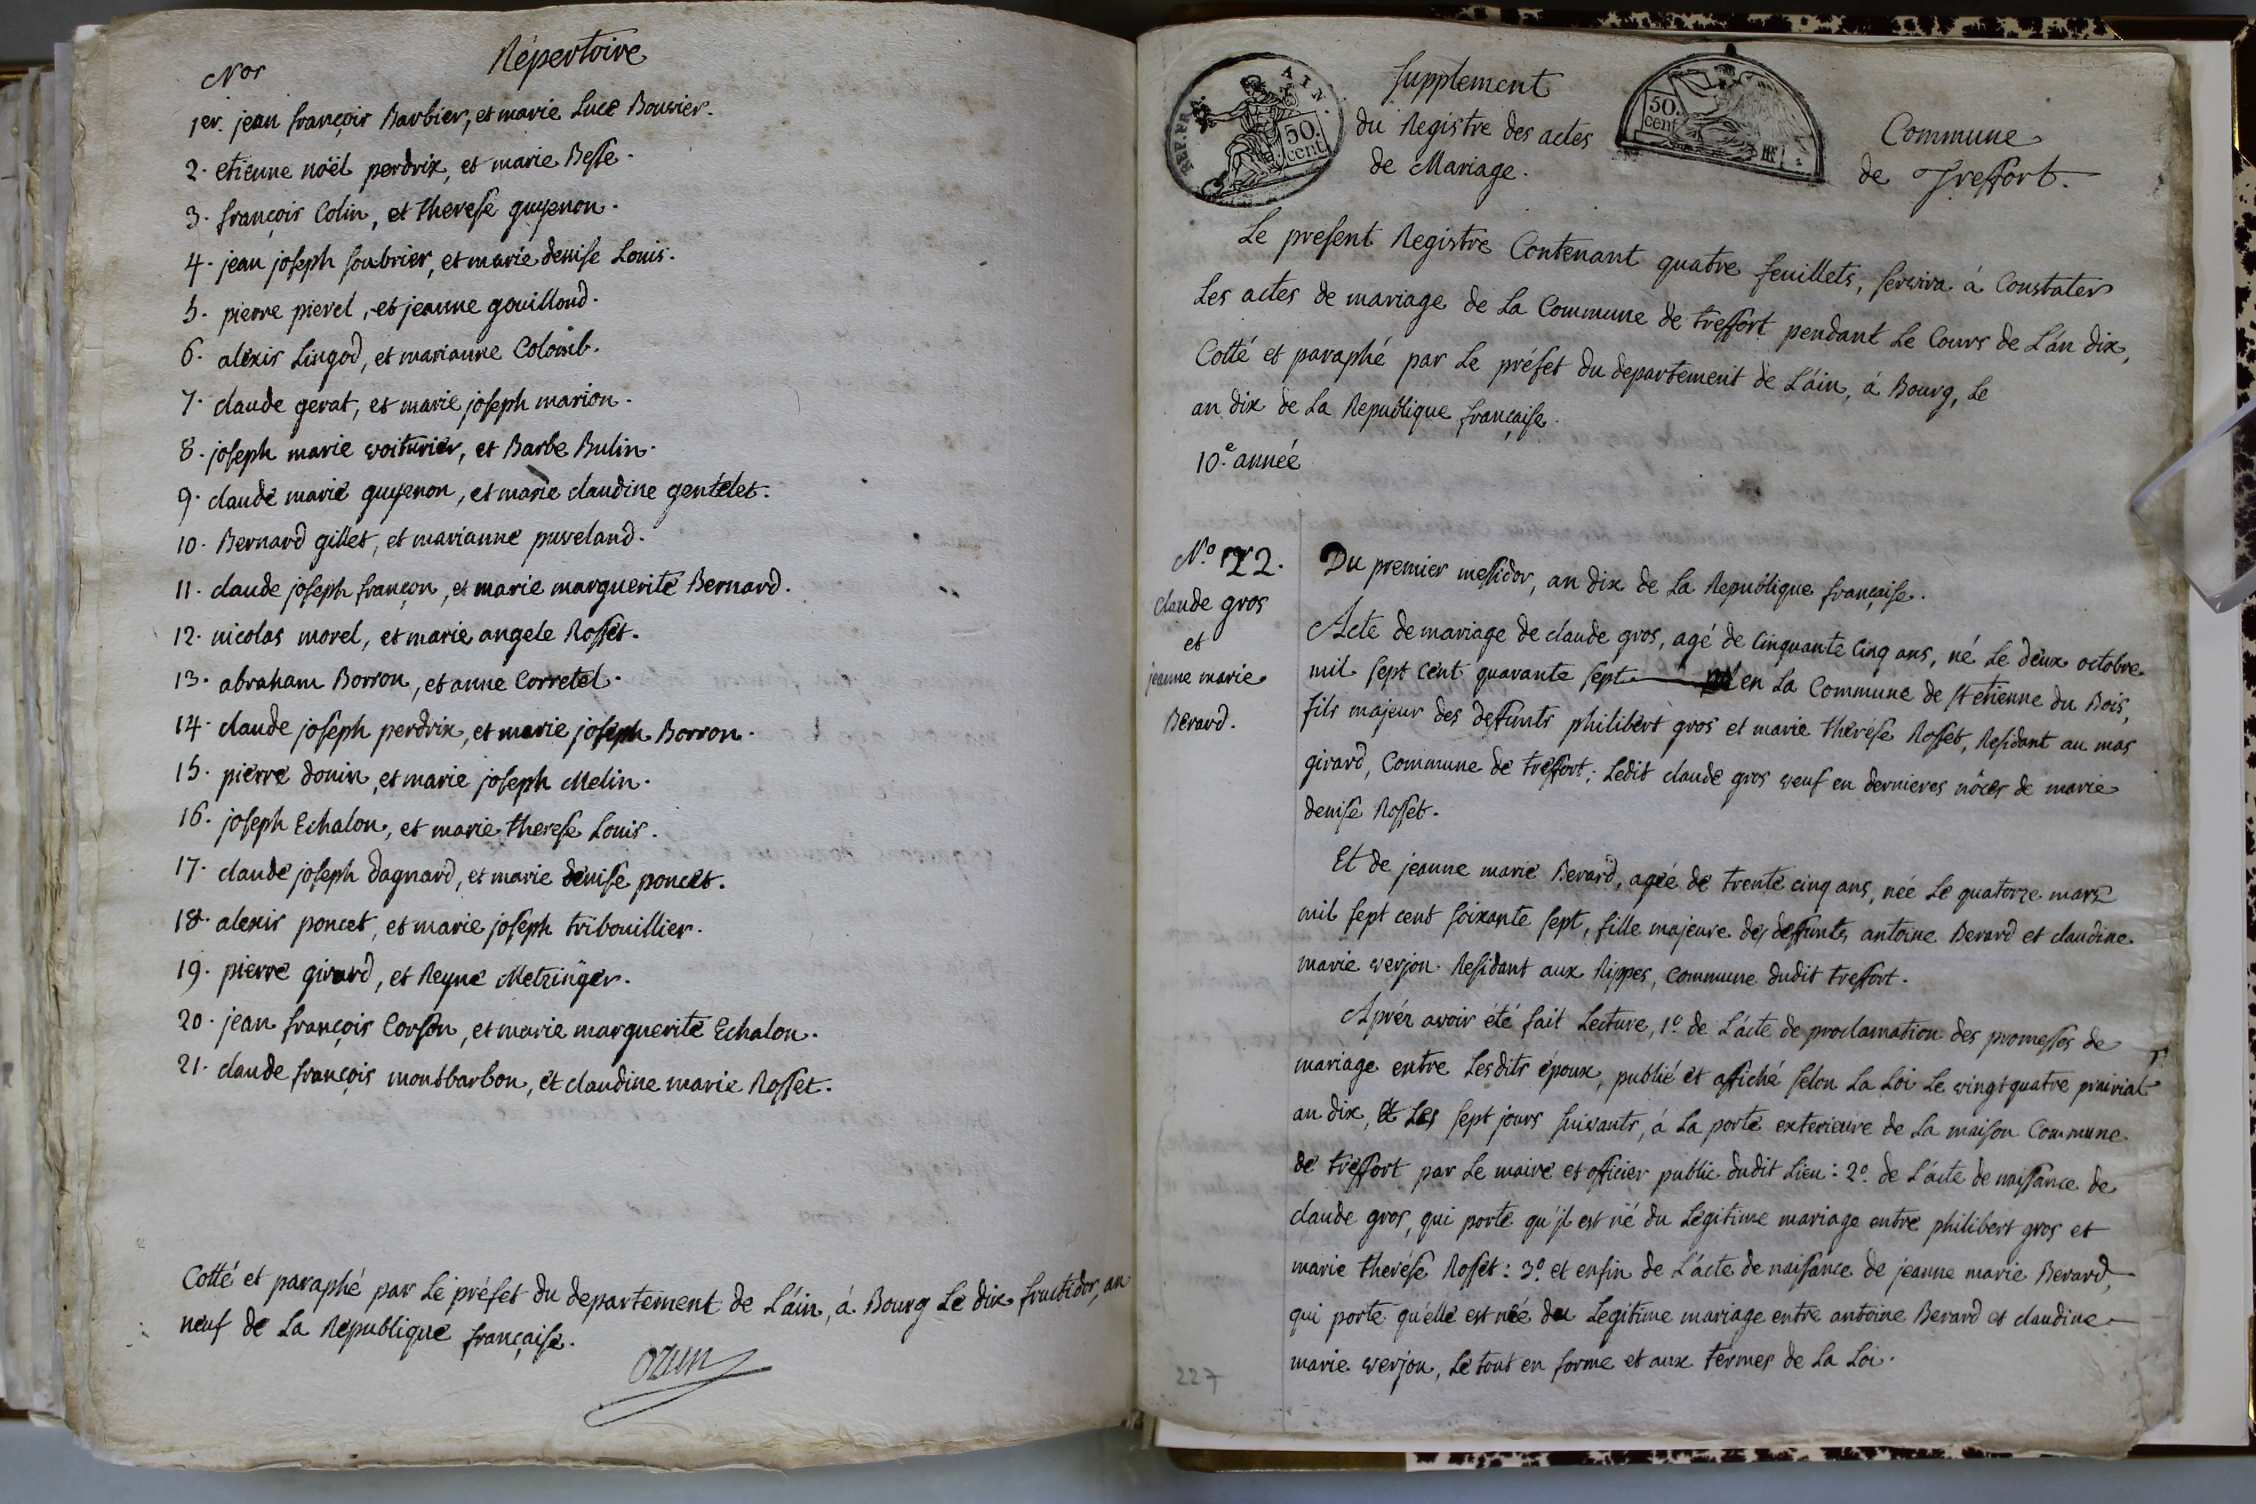 Répertoire
Nos
1er. jean françois Barbier, et marie Luce Bouvier.
2. etienne noël perdrix, et marie Besse.
3. françois Colin, et therese guyenon.
4. jean joseph soubrier, et marie denise Louis.
5. pierre pierel, et jeanne gouillond.
6. alexis Lingod, et marianne Colomb.
7. claude gerat, et marie joseph marion.
8. joseph marie voiturier, et Barbe Bulin.
9. claude marie guyenon, et marie claudine gentelet.
10. Bernard gillet, et marianne puveland.
11. claude joseph françon, et marie marguerite Bernard.
12. nicolas morel, et marie angele Rosset.
13. abraham Borron, et anne Corretel.
14. claude joseph perdrix, et marie joseph Borron.
15. pierre donin, et marie joseph Melin.
16. joseph Echalon, et marie therese Louis.
17. claude joseph dagnard, et marie denise poncet.
18. alexis poncet, et marie joseph tribouillier.
19. pierre girard, et Reyne Metzinger.
20. jean françois Corson, et marie marguerite Echalon.
21. claude françois montbarbon, et claudine marie Rosset.
Cotté et paraphé par Le préfet du departement de L'áin, á Bourg Le dix fructidor, an
neuf de La Republique française.
Ozun
REP. FRA. AIN.
50. cent.
50. cent
supplement
du Registre des actes
de Mariage.
Commune
de Treffort.
Le present Registre Contenant quatre feuillets, servira á Constater
Les actes de mariage de La Commune de treffort pendant Le Cours de L'án dix,
Cotté et paraphé par Le préfet du departement de L'áin, á Bourg, Le
an dix de La Republique française.
10.e année
N.o 22.
claude gros
et
jeanne marie
Berard.
Du premier messidor, an dix de La Republique française.
Acte de mariage de claude gros, agé de Cinquante Cinq ans, né Le deux octobre
mil sept cent quarante sept en La Commune de St etienne du Bois,
fils majeur des deffunts philibert gros et marie thérése Rosset, Residant au mas
girard, Commune de treffort; Ledit claude gros veuf en dernieres nôces de marie
denise Rosset.
Et de jeanne marie Berard, agée de trente cinq ans, née Le quatorze mars
mil sept cent soixante sept, fille majeure des deffunts antoine Berard et claudine
marie verjon. Residant aux Rippes, Commune dudit treffort.
Aprés avoir été fait Lecture, 1.o de L'ácte de proclamation des promesses de
mariage entre Lesdits époux, publié et affiché selon La Loi Le vingt quatre prairial
an dix, et Les sept jours suivants, á La porte exterieure de La maison Commune
de treffort par Le maire et officier public dudit Lieu: 2.o de L'ácte de naissance de
claude gros, qui porte qu'jl est né du Légitime mariage entre philibert gros et
marie therése Rosset: 3.o et enfin de L'ácte de naissance de jeanne marie Berard,
qui porte qu'elle est née du Legitime mariage entre antoine Berard et claudine
marie verjon, Le tout en forme et aux termes de La Loi.
227